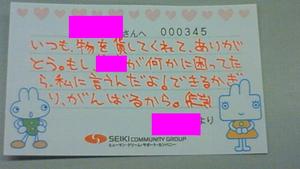 さんへ 000345
いつも、物を貸してくれて、ありが
とう。もし が何かに困ってた
ら、私に言うんだよ!できるかぎ
り、がんばるから。
より
SEIKI COMMUNITY GROUP
ヒューマン・ドリーム・サポート・カンパニー